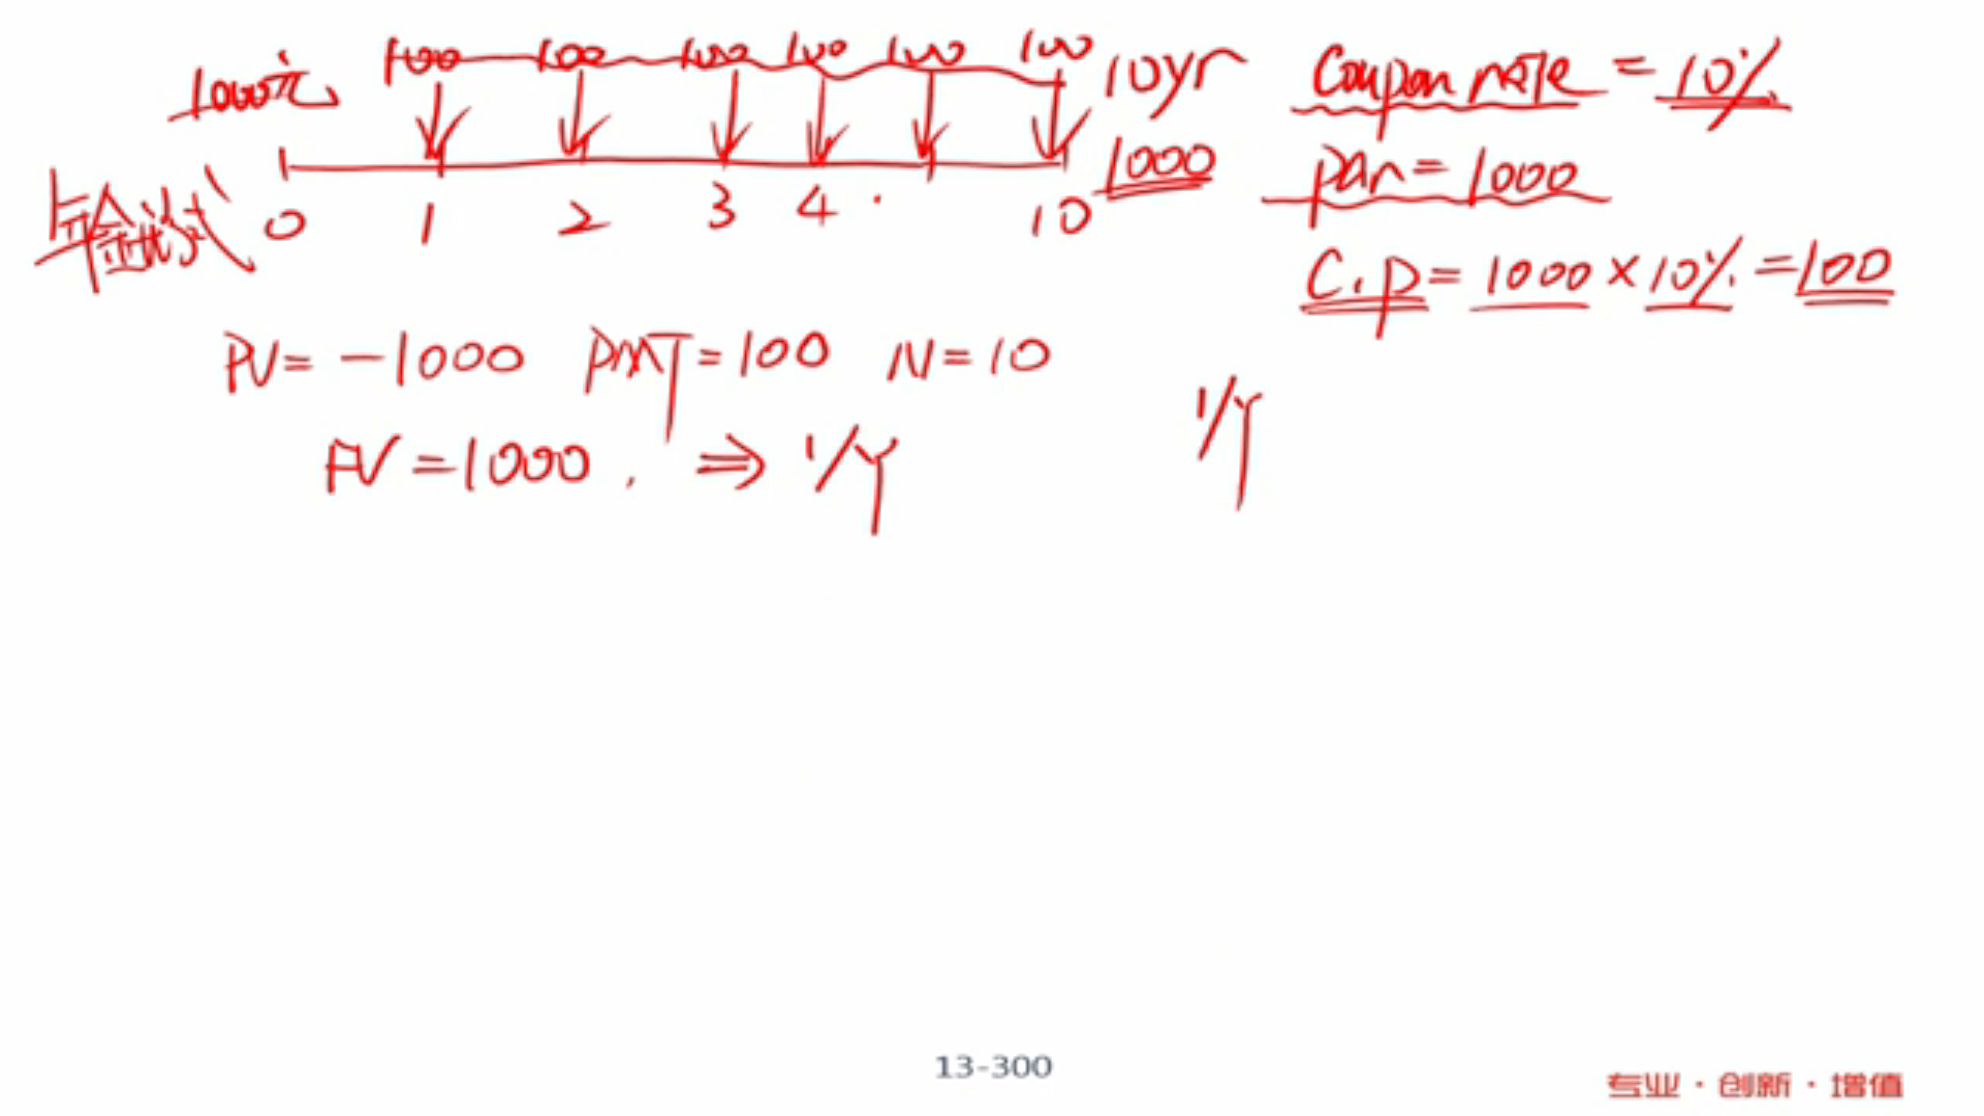 1000元 100 100 100 100 100 100 10yr
1000
年金形式 0 1 2 3 4 · 10
Coupon rate = 10%
par = 1000
C.p = 1000 × 10% = 100
PV = -1000 PMT = 100 N = 10
FV = 1000. ⇒ I/Y
I/Y
13-300
专业·创新·增值